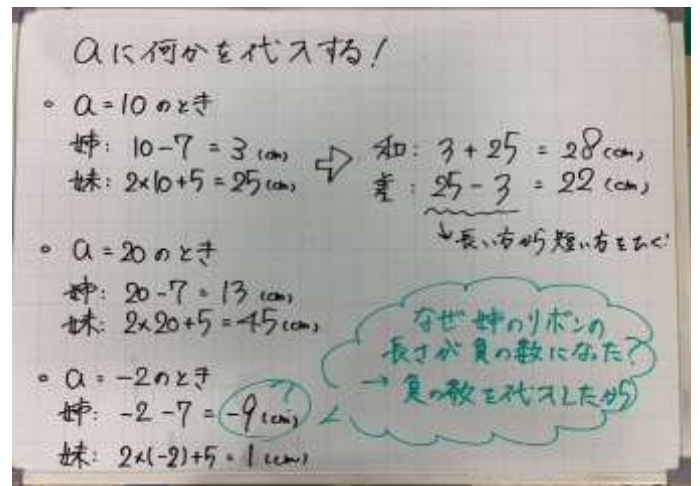 aに何かを代入する!
○ a=10のとき
姉: 10-7 = 3(cm)
妹: 2×10+5 = 25(cm)
⇨ 和: 3+25 = 28(cm)
差: 25-3 = 22(cm)
↓長い方から短い方をひく
○ a=20のとき
姉: 20-7 = 13(cm)
妹: 2×20+5 = 45(cm)
○ a=-2のとき
姉: -2-7 = -9(cm)
妹: 2×(-2)+5 = 1(cm)
なぜ姉のリボンの
長さが負の数になった?
→ 負の数を代入したから